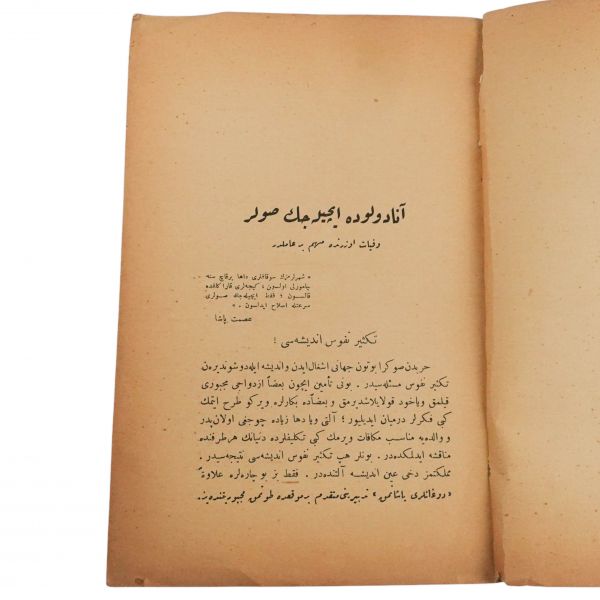 آناطولوده ایچیله‌جك صولر
وفیات اوزرنده مهم بر عاملدر
« شهرلرمزك سوقاقلری داها برقاچ سنه
چامورلی اولسون ، کیجه‌لری قارا کلقده
قالسون ؛ فقط ایچیله‌جك صولری
سرعتله اصلاح ایدلسون . »
عصمت پاشا
تکثیر نفوس اندیشه‌سی !
حربدن صوکرا بوتون جهانی اشغال ایدن و اندیشه ایله دوشوندیرن
تکثیر نفوس مسئله‌سیدر . بونی تأمین ایچون بعضاً ازدواجی مجبوری
قیلمق ویاخود قولایلاشدیرمق و بعضاً ده بکارلره ویرکو طرح ایتمك
کبی فکرلر درمیان ایدیلیور ؛ آلتی ویا دها زیاده چوجغی اولان پدر
و والده‌یه مناسب مکافات ویرمك کبی تکلیفلرده دنیانك هر طرفنده
مناقشه ایدلمکده‌در . بونلر هپ تکثیر نفوس اندیشه‌سی نتیجه‌سیدر .
مملکتمز دخی عین اندیشه آلتنده‌در . فقط بز بو چاره‌لره علاوةً
« دوغانلری یاشاتمق » تدبیرینی متقدم بر موقعده طوتمق مجبوریتنده‌یز .